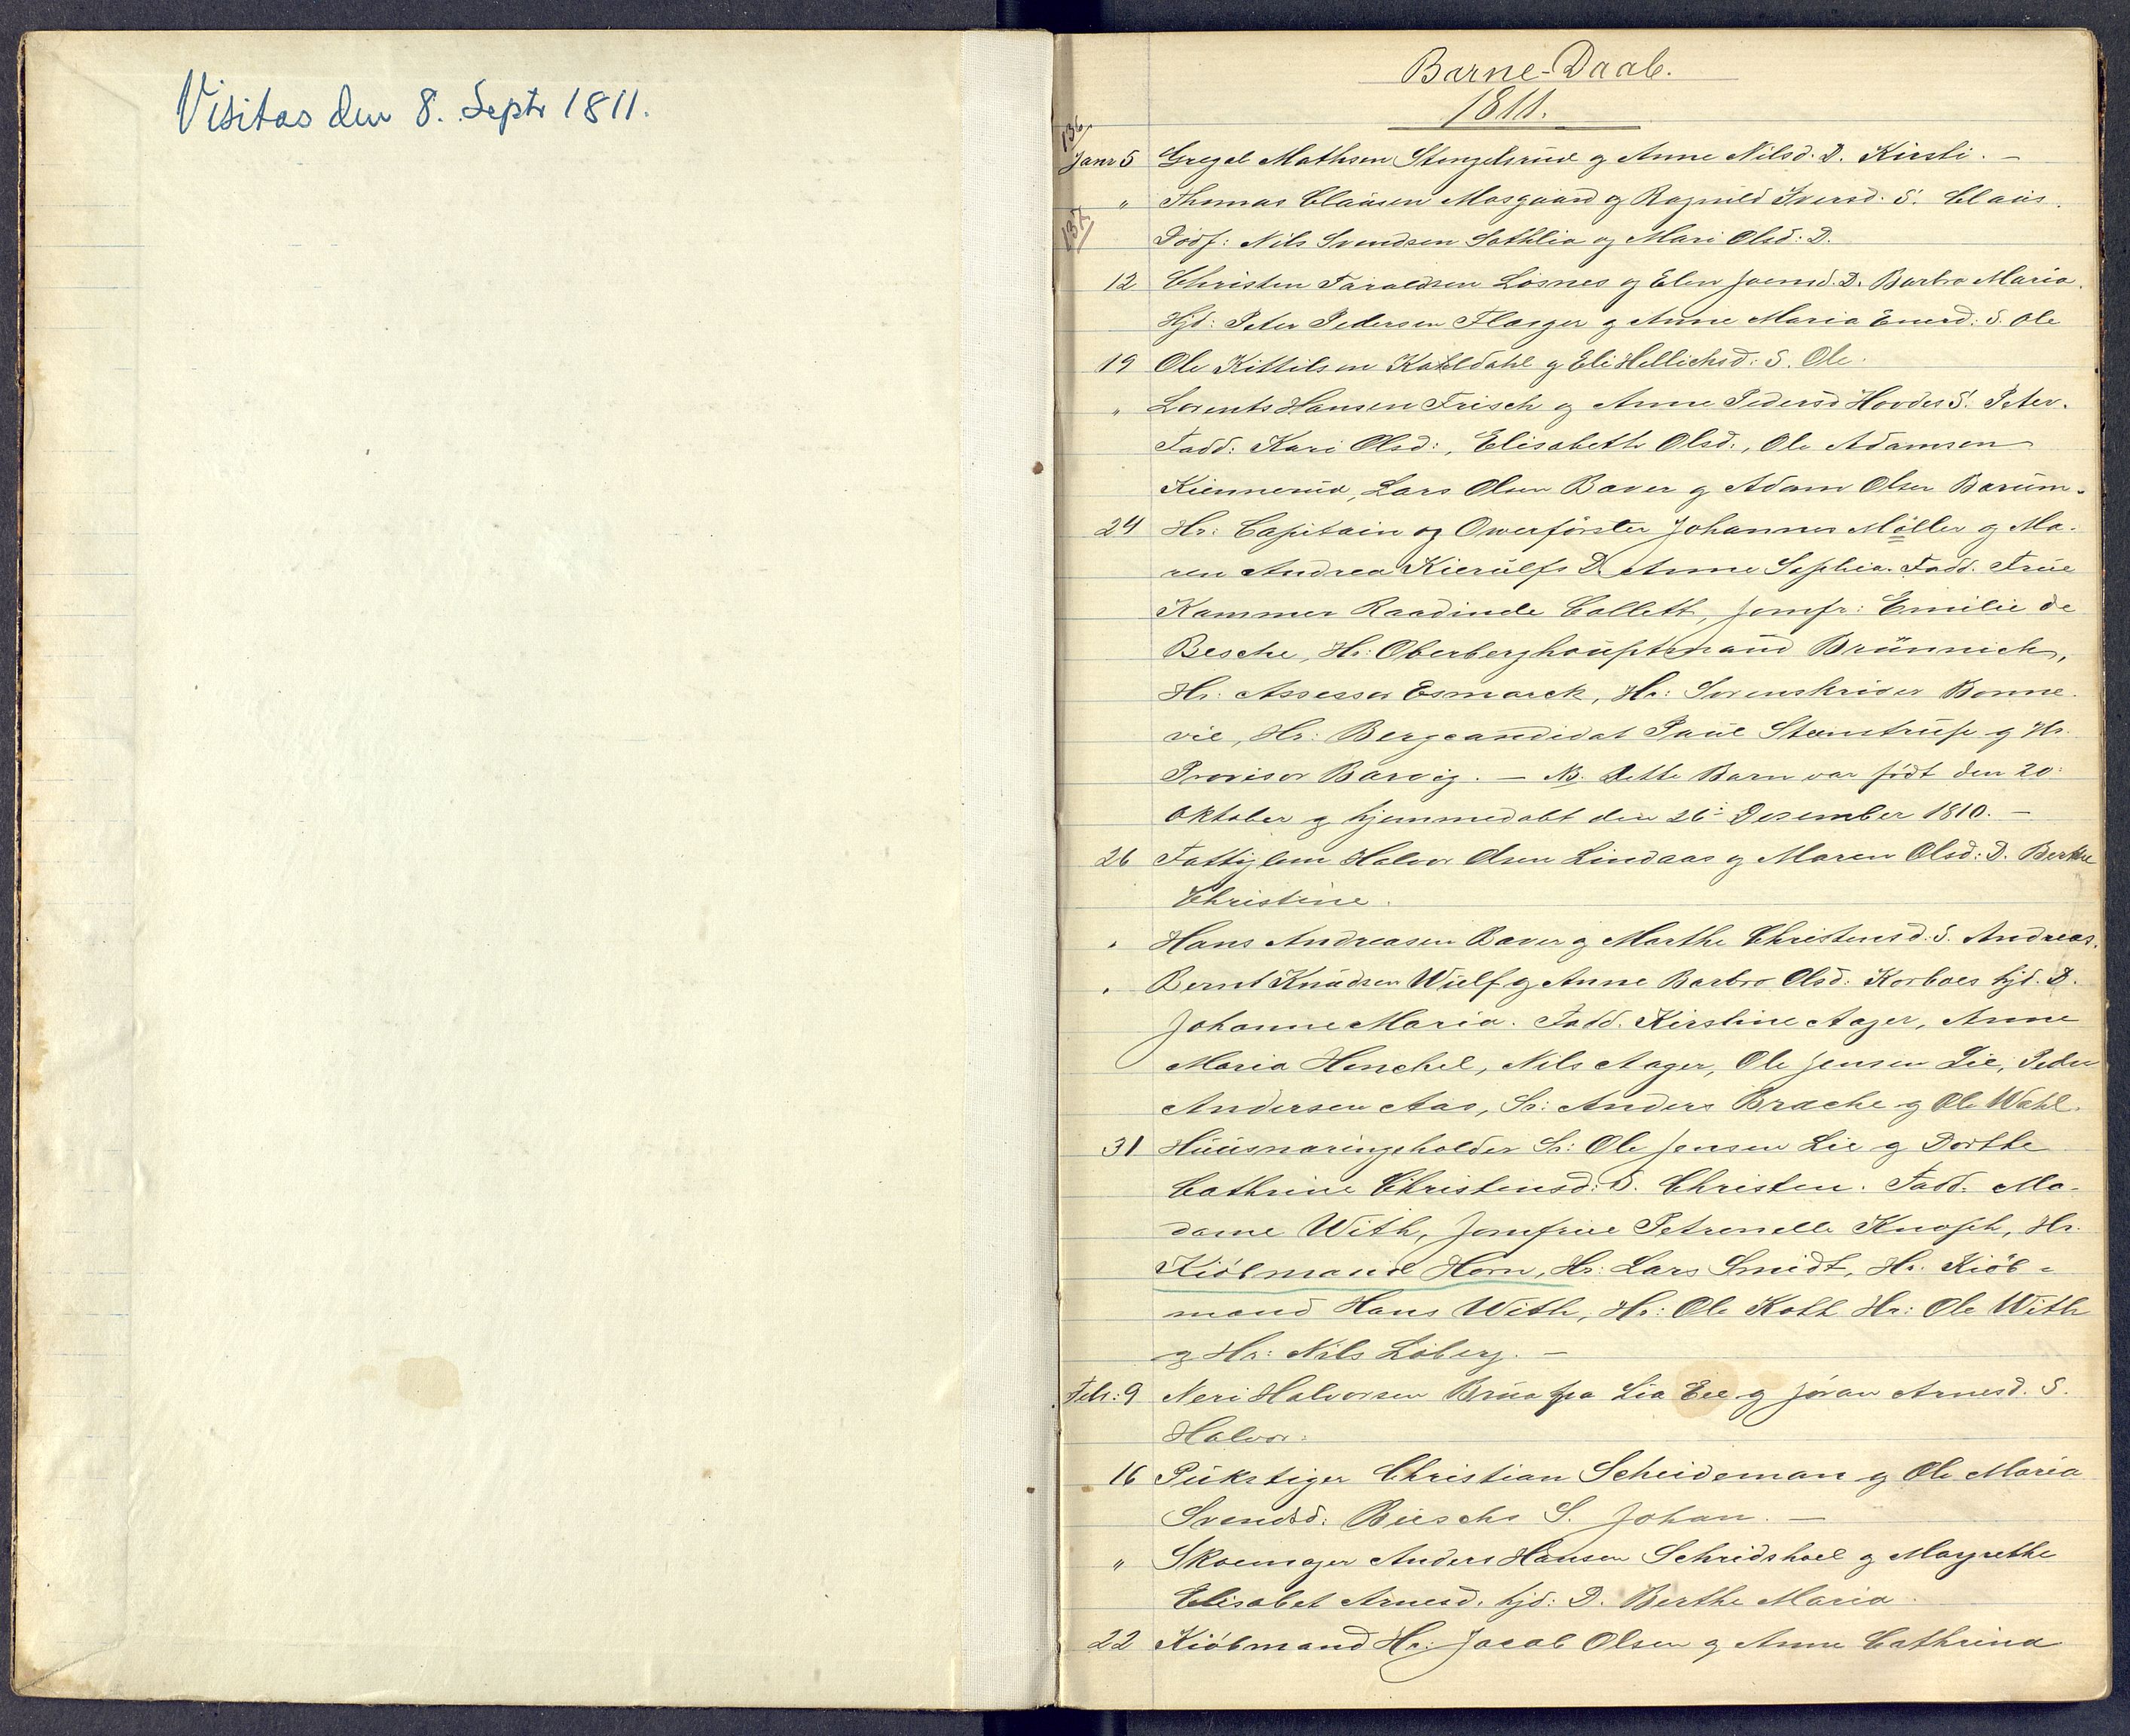 Visitas den 8. Septr 1811.
Barne-Daab.
1811.
136
Janr 5 Gregal Mathsen Stengelsrud og Anne Nilsd. D. Kirsti. –
137
" Thomas Claüsen Masgaard og Ragnild Iversd. S. Claüs.
Dödf: Nils Svendsen Sathlia og Mari Olsd: D.
12 Christen Taraldsen Losnes og Elen Joensd. D. Barbro Maria.
Hjd: Peter Pedersen Flæger og Anne Maria Enersd: S. Ole
19 Ole Kittilsen Katldahl og Eli Hellichsd: S. Ole.
" Lorents Hansen Frisch og Anne Pedersd Hovdes S. Peter.
Fadd: Kari Olsd:, Elisabeth Olsd:, Ole Adamsen
Kiennerud, Lars Olsen Baver og Adam Olsen Barüm.
24 Hr: Capitain og Owerförster Johannes Möller og Ma-
ren Andrea Kierülfs D. Anne Sophia. Fadd. Früe
Kammer Raadinde Collett, Jomfr: Emilie de
Besche, Hr: Oberberghauptmand Brünnich,
Hr: Assessor Esmarck, Hr: Sorenskriver Bonne-
vie, Hr: Bergcandidat Paul Steenstrup og Hr.
Provisor Barvig. – NB. Dette Barn var födt den 20:
Oktober og hjemmedøbt den 26: Desember 1810. –
26 Fattiglem Halvor Olsen Lindaas og Maren Olsd: D. Berthe
Christine.
" Hans Andreasen Baver og Marthe Christensd: S. Andreas.
" Bernt Knudsen Wülf og Anne Barbro Olsd. Korboes hjd. D.
Johanne Maria. Fadd. Kirstine Aager, Anne
Maria Henchel, Nils Aager, Ole Jensen Lie, Peder
Andersen Aas, Sr: Anders Brache og Ole Wahl.
31 Hüüsnæringsholder Sr: Ole Jensen Lie og Dorthe
Cathrine Christensd: S. Christen. Fadd. Ma-
dame With, Jomfrue Petronelle Knoph, Hr.
Kiöbmand Horn, Hr: Lars Smidt, Hr. Kiöb-
mand Hans With, Hr: Ole Kohl Hr: Ole With
og Hr: Nils Löberg. –
Febr: 9 Neri Halvorsen Brüa fra Lia Eie og Jöran Arnesd. S.
Halvor.
16 Pükstiger Christian Scheideman og Ole Maria
Svendsd: Büschs S. Johan. –
" Skoemager Anders Hansen Schridshoel og Margrethe
Elisabet Arnesd. hjd: D. Berthe Maria.
22 Kiöbmand Hr: Jacob Olsen og Anne Cathrina